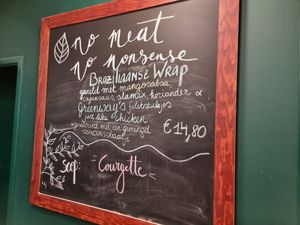 No Meat
No Nonsense
Braziliaanse Wrap
gevuld met mangosalsa,
slamix, koriander &
Greenway's filetstukjes
just like chicken
geserveerd met een gemengd
€14,80
Soep:
Courgette